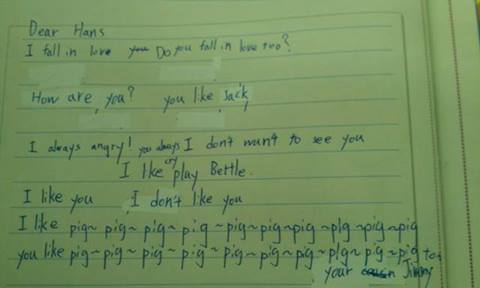 Dear Hans
I fall in love you Do you fall in love too?
How are you? you like Jack
I always angry! you always I don't want to see you
cry
I like play Bettle.
I like you I don't like you
I like pig~ pig~ pig~ pig ~pig~pig~pig~pig~pig~pig
you like pig~pig~pig~ pig ~ pig~pig~pig~pig~pig~pig too
your Jimmy